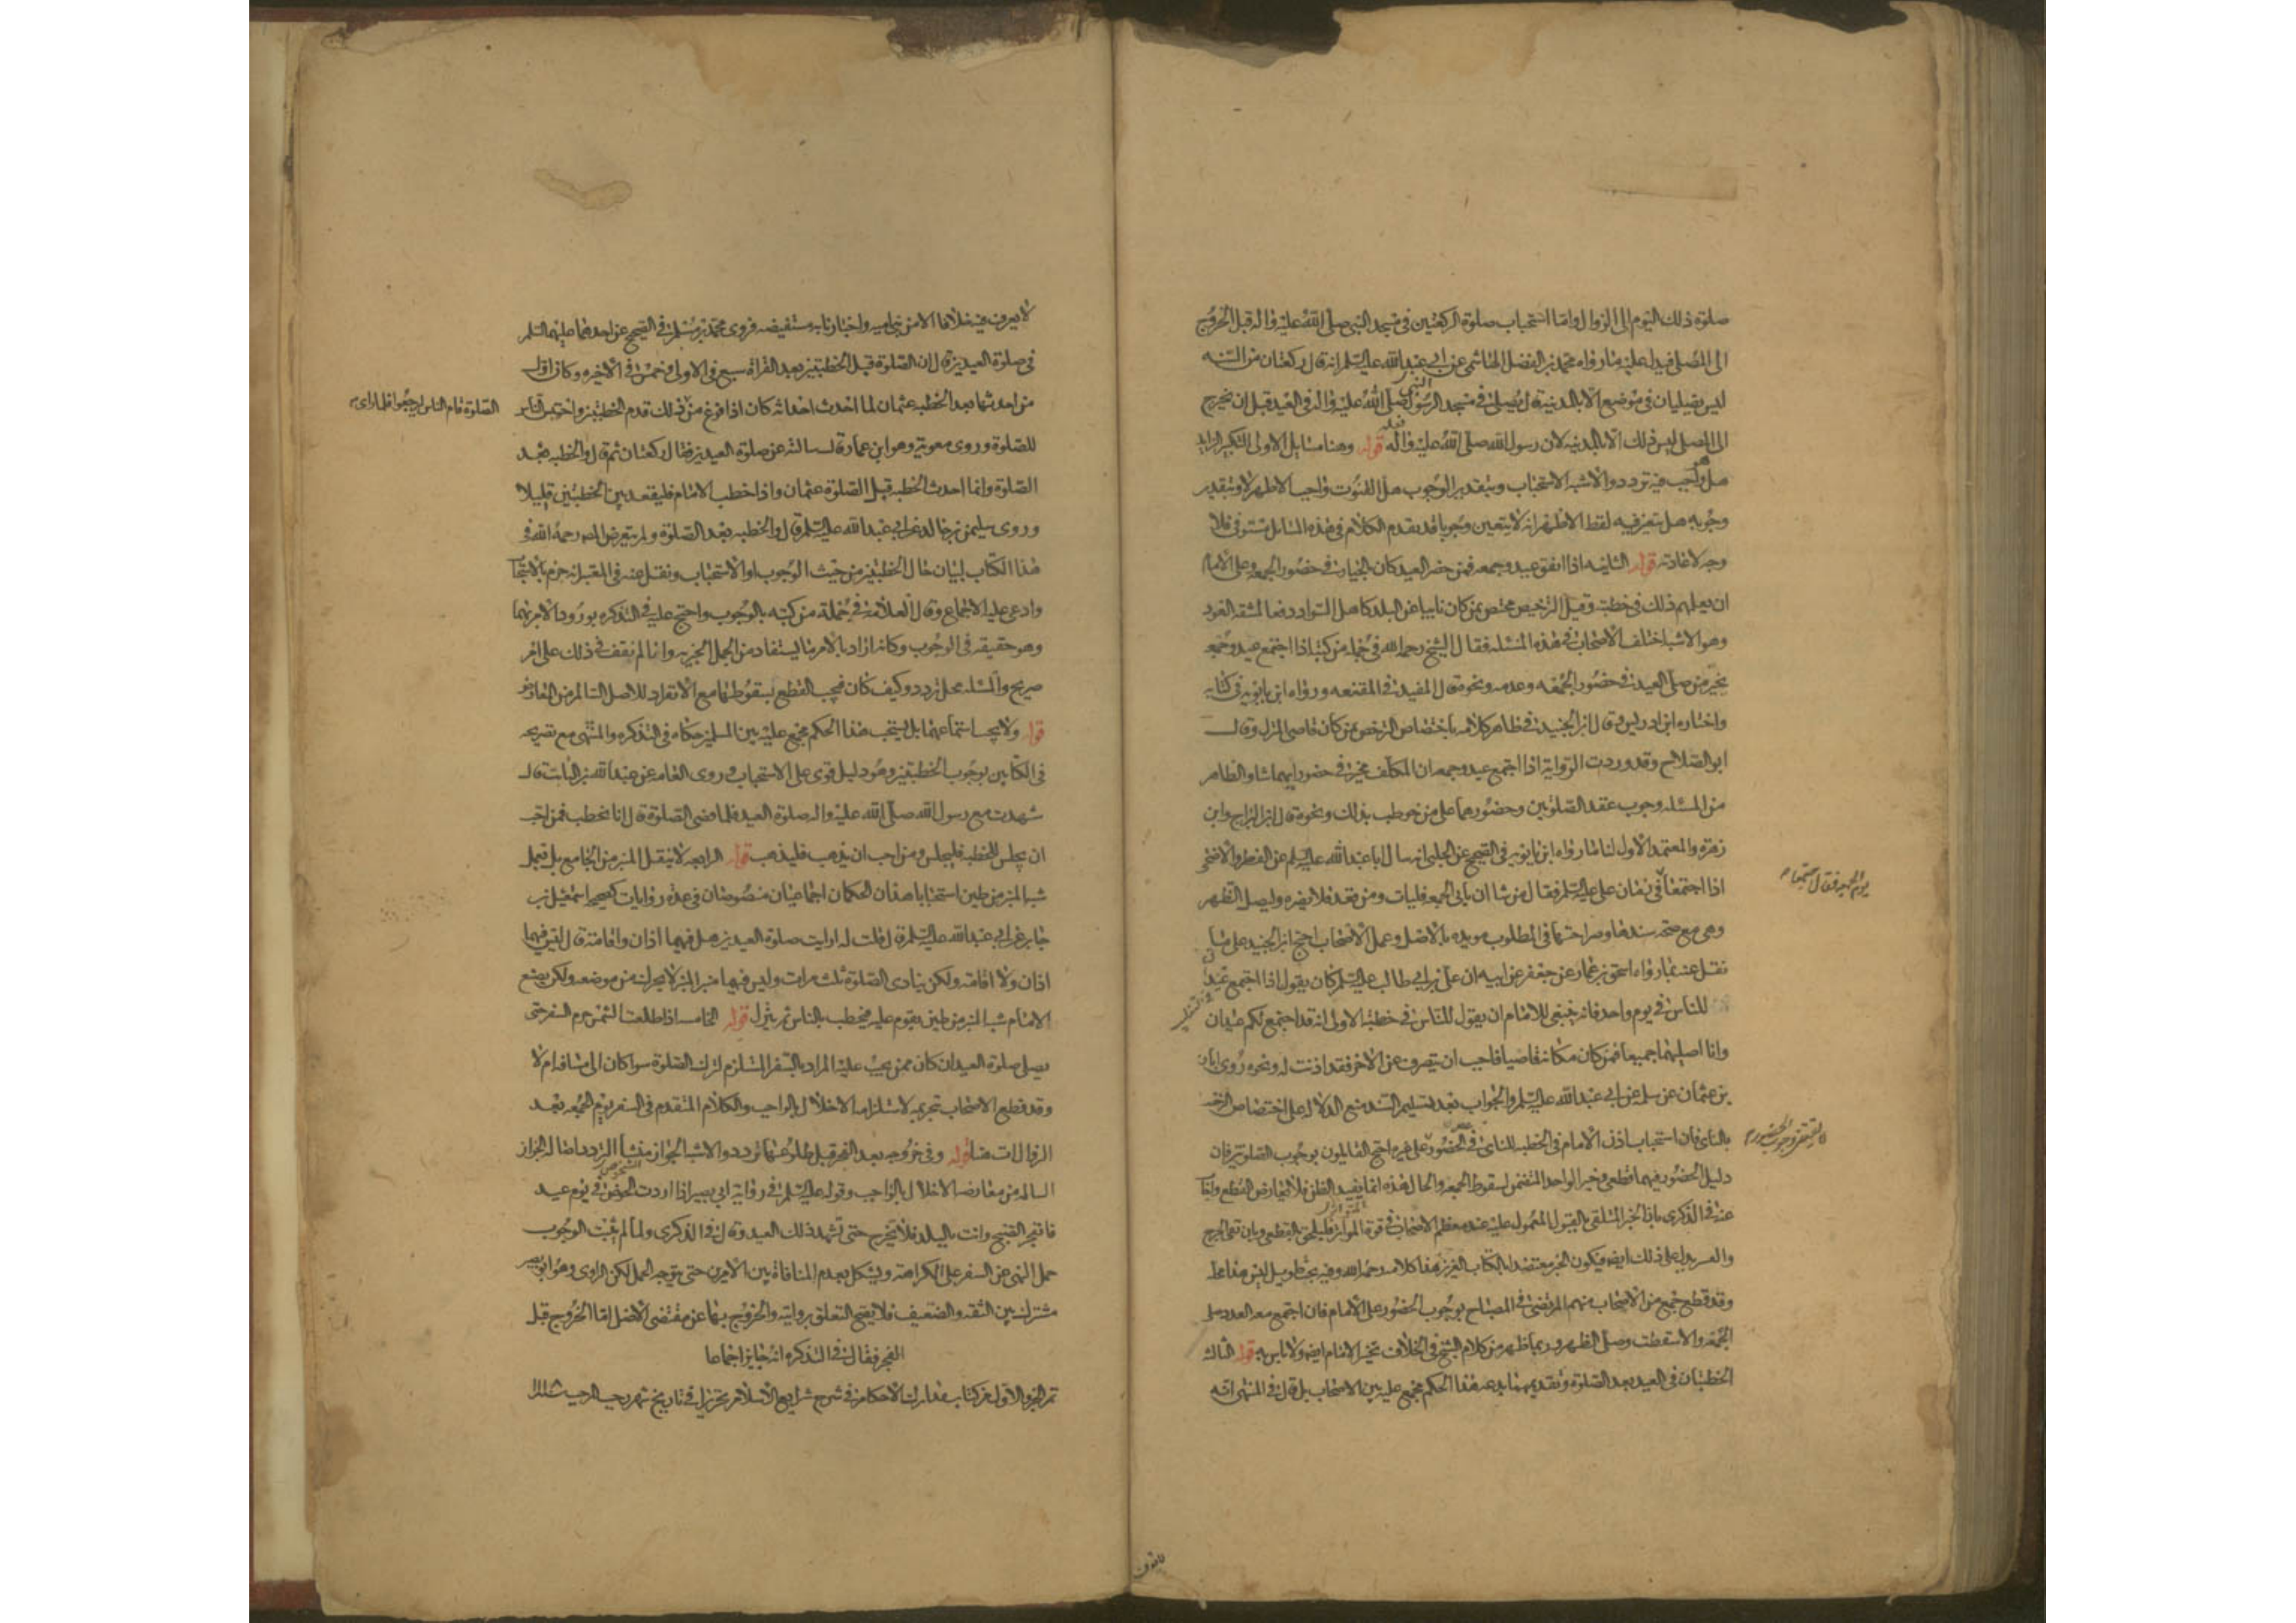 صلوة ذلك اليوم الى الزوال واما استحباب صلوة الركعتين في مسجد النبي صلى الله عليه واله قبل الخروج
الى المصلى فيدل عليه ما رواه محمد بن الفضل الهاشمي عن ابي عبد الله عليه السلم انه قال ركعتان من السنه
ليس يصليان في موضع الا بالمدينة قال يصلى في مسجد الرسول صلى الله عليه واله في العيد قبل ان يخرج
الى المصلى ليس ذلك الا بالمدينه لان رسول الله صلى الله عليه واله فعله قوله وهنا مسايل الاولى التكبير الزايد
هل هو واجب فيه تردد والاشبه الاستحباب وبتقدير الوجوب هل القنوت واجب الاظهر لا وبتقدير
وجوبه هل يتعين فيه لفظ الاظهر انه لا يتعين وجوبا قد تقدم الكلام في هذه المسائل مستوفى فلا
وجه لاعادته قوله الثانيه اذا اتفق عيد وجمعه فمن حضر العيد كان بالخيار في حضور الجمعه وعلى الامام
ان يعلمهم ذلك في خطبته وقيل الترخيص مختص بمن كان نايبا عن البلد كاهل السواد دفعا لمشقه العود
وهو الاشبه اختلف الاصحاب في هذه المسئله فقال الشيخ رحمه الله في جمله من كتبه اذا اجتمع عيد وجمعه
تخير من صلى العيد في حضور الجمعه وعدمه ونحوه قال المفيد في المقنعه ورواه ابن بابويه في كتابه
واختاره ابن ادريس وقال ابن الجنيد في ظاهر كلامه باختصاص الترخص بمن كان قاصي المنزل وقال
ابو الصلاح وقد وردت الرواية اذا اجتمع عيد وجمعه ان المكلف مخير في حضور ايهما شاء والظاهر
من المسئله وجوب عقد الصلوتين وحضورهما على من خوطب بذلك ونحوه قال ابن البراج وابن
زهره والمعتمد الاول لنا ما رواه ابن بابويه في الصحيح عن الحلبي انه سال ابا عبد الله عليه السلم عن الفطر والاضحى
اذا اجتمعا في زمان علي عليه السلم فقال من شا ان ياتي الجمعه فليات ومن قعد فلا يضره وليصل الظهر
يوم الجمعه فقال اجتمعا
وهي مع صحه سندها وصراحتها في المطلوب مويده بالاصل وعمل الاصحاب احتج ابن الجنيد على ما
نقل عنه بما رواه اسحق بن عمار عن جعفر عن ابيه ان علي بن ابي طالب عليه السلم كان يقول اذا اجتمع عيد
للناس في يوم واحد فانه ينبغي للامام ان يقول للناس في خطبته الاولى انه قد اجتمع لكم عيدان
وانا اصليهما جميعا فمن كان مكانه قاصيا فاحب ان ينصرف عن الاخر فقد اذنت له ونحوه روى ابان
بن عثمان عن سلمه عن ابي عبد الله عليه السلم والجواب بعد تسليم السند منع الدلاله على اختصاص الرخصه
بالنايى فان استحباب اذن الامام في الخطبه للنايى في عدم الحضور على غيره احتج القايلون بوجوب الصلوتين فان
لا يقتضي وجوب الحضور
دليل الحضور فيهما قطعي وخبر الواحد المتضمن لسقوط الجمعه والحال هذه انما يفيد الظن فلا يعارض القطع واجاب
عنه في الذكرى بان الخبر المتلقى بالقبول المعمول عليه عند معظم الاصحاب في قوة المتواتر فيلحق بالقطعي وبان نفى الحرج
والعسر يدل على ذلك ايضا فيكون الخبر معتضدا بالكتاب العزيز هذا كلامه رحمه الله وفيه بحث طويل ليس هذا محله
وقد قطع جمع من الاصحاب منهم المرتضى في المصباح بوجوب الحضور على الامام فان اجتمع معه العدد صلى
الجمعه والا سقطت وصلى الظهر وربما ظهر من كلام الشيخ في الخلاف تخير الامام ايضا ولا باس به قوله الثالثه
الخطبتان في العيد بعد الصلوة وتقديمهما بدعه هذا الحكم مجمع عليه بين الاصحاب بل قال في المنتهى انه
لا يعرف فيه خلافا الا من بني اميه واخبارنا به مستفيضه فروى محمد بن مسلم في الصحيح عن احدهما عليهما السلم
في صلوة العيدين قال ان الصلوة قبل الخطبتين بعد القراة سبع في الاولى وخمس في الاخيره وكان اول
من احدثها بعد الخطبه عثمان لما احدث احداثه كان اذا فرغ من ذلك قدم الخطبتين واحتبس الناس
الصلوة قام الناس ليرجعوا فلما راى
للصلوة وروى معويه وهو ابن عمار قال سالته عن صلوة العيدين فقال ركعتان ثم قال والخطبه بعد
الصلوة وانما احدث الخطبه قبل الصلوة عثمان واذا خطب الامام فليقعد بين الخطبتين قليلا
وروى سليمن بن خالد عن ابي عبد الله عليه السلم قال والخطبه بعد الصلوة ولم يتعرض المص رحمه الله في
هذا الكتاب لبيان حال الخطبتين من حيث الوجوب او الاستحباب ونقل عنه في المعتبر انه جزم بالاستحباب
وادعى عليه الاجماع وقال العلامه في جملة من كتبه بالوجوب واحتج عليه في التذكره بورود الامر بهما
وهو حقيقه في الوجوب وكانه اراد بالامر ما يستفاد من الجمل الخبريه وانا لم نقف في ذلك على امر
صريح والمسئله محل تردد وكيف كان فيجب القطع بسقوطهما مع الانفراد للاصل السالم من المعارض
قوله ولا يجب استماعهما بل يستحب هذا الحكم مجمع عليه بين المسلمين حكاه في التذكره والمنتهى مع تصريحه
في الكتابين بوجوب الخطبتين وهو دليل قوى على الاستحباب وروى العامه عن عبد الله بن السايب قال
شهدت مع رسول الله صلى الله عليه واله صلوة العيد فلما قضى الصلوة قال انا نخطب فمن احب
ان يجلس للخطبه فليجلس ومن احب ان يذهب فليذهب قوله الرابعه لا ينقل المنبر من الجامع بل يعمل
شبه المنبر من طين استحبابا هذان الحكمان اجماعيان منصوصان في عدة روايات كصحيحه اسمعيل بن
جابر عن ابي عبد الله عليه السلم قال قلت له ارايت صلوة العيدين هل فيهما اذان واقامة قال ليس فيهما
اذان ولا اقامة ولكن ينادى الصلوة ثلث مرات وليس فيهما منبر المنبر لا يحرك من موضعه ولكن يصنع
الامام شبه المنبر من طين يقوم عليه فيخطب بالناس ثم ينزل قوله الخامسه اذا طلعت الشمس حرم السفر حتى
يصلي صلوة العيد ان كان ممن يجب عليه المراد بالسفر المستلزم لترك الصلوة سوا كان الى مسافه ام لا
وقد قطع الاصحاب بتحريمه لاستلزامه الاخلال بالواجب والكلام المتقدم في السفر يوم الجمعه بعد
الزوال ات هنا قوله وفي خروجه بعد الفجر قبل طلوعها تردد والاشبه الجواز منشا التردد اصاله الجواز
السالمه من معارضه الاخلال بالواجب وقوله عليه السلم في رواية ابي بصير اذا اردت الشخوص في يوم عيد
فانفجر الصبح وانت بالبلد فلا تخرج حتى تشهد ذلك العيد وقال في الذكرى ولما لم يثبت الوجوب
حمل النهى عن السفر على الكراهة ويشكل بعدم المنافاة بين الامرين حتى يتوجه الحمل لكن الراوى وهو ابو بصير
مشترك بين الثقه والضعيف فلا يصح التعلق بروايته والخروج بها عن مقتضى الاصل اما الخروج قبل
الفجر فقال في التذكره انه جايز اجماعا
تم الجزو الاول من كتاب مدارك الاحكام في شرح شرايع الاسلام في تاريخ شهر رجب المرجب